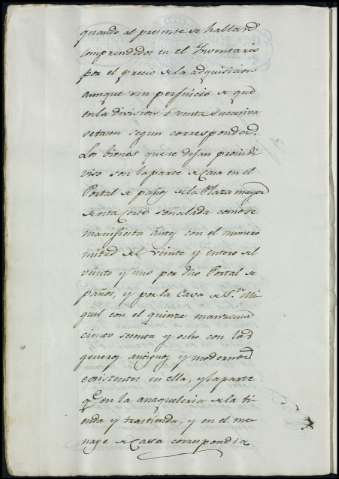 quando al presente se hallan
comprendidos en el Inventario
por el precio de la adquisicion
aunque sin perjuicio de que
en la division ó venta
segun corresponda.
Los bienes que se dejan proindi
viso son la parte de Casa en el
Portal de paños de la Plaza mayor
de esta Corte señalada
manifiesto con el numero
mitad del veinte y entero el
veinte y uno por dho Portal de
paños, y por la Casa de Sn. Mi
guel con el quince manzana
ciento setenta y ocho con los
antiguos y modernos
existentes en ella, y la parte
qe. en la anaqueleria de la ti
enda y trastienda, y en el me
nage de Casa correspondia